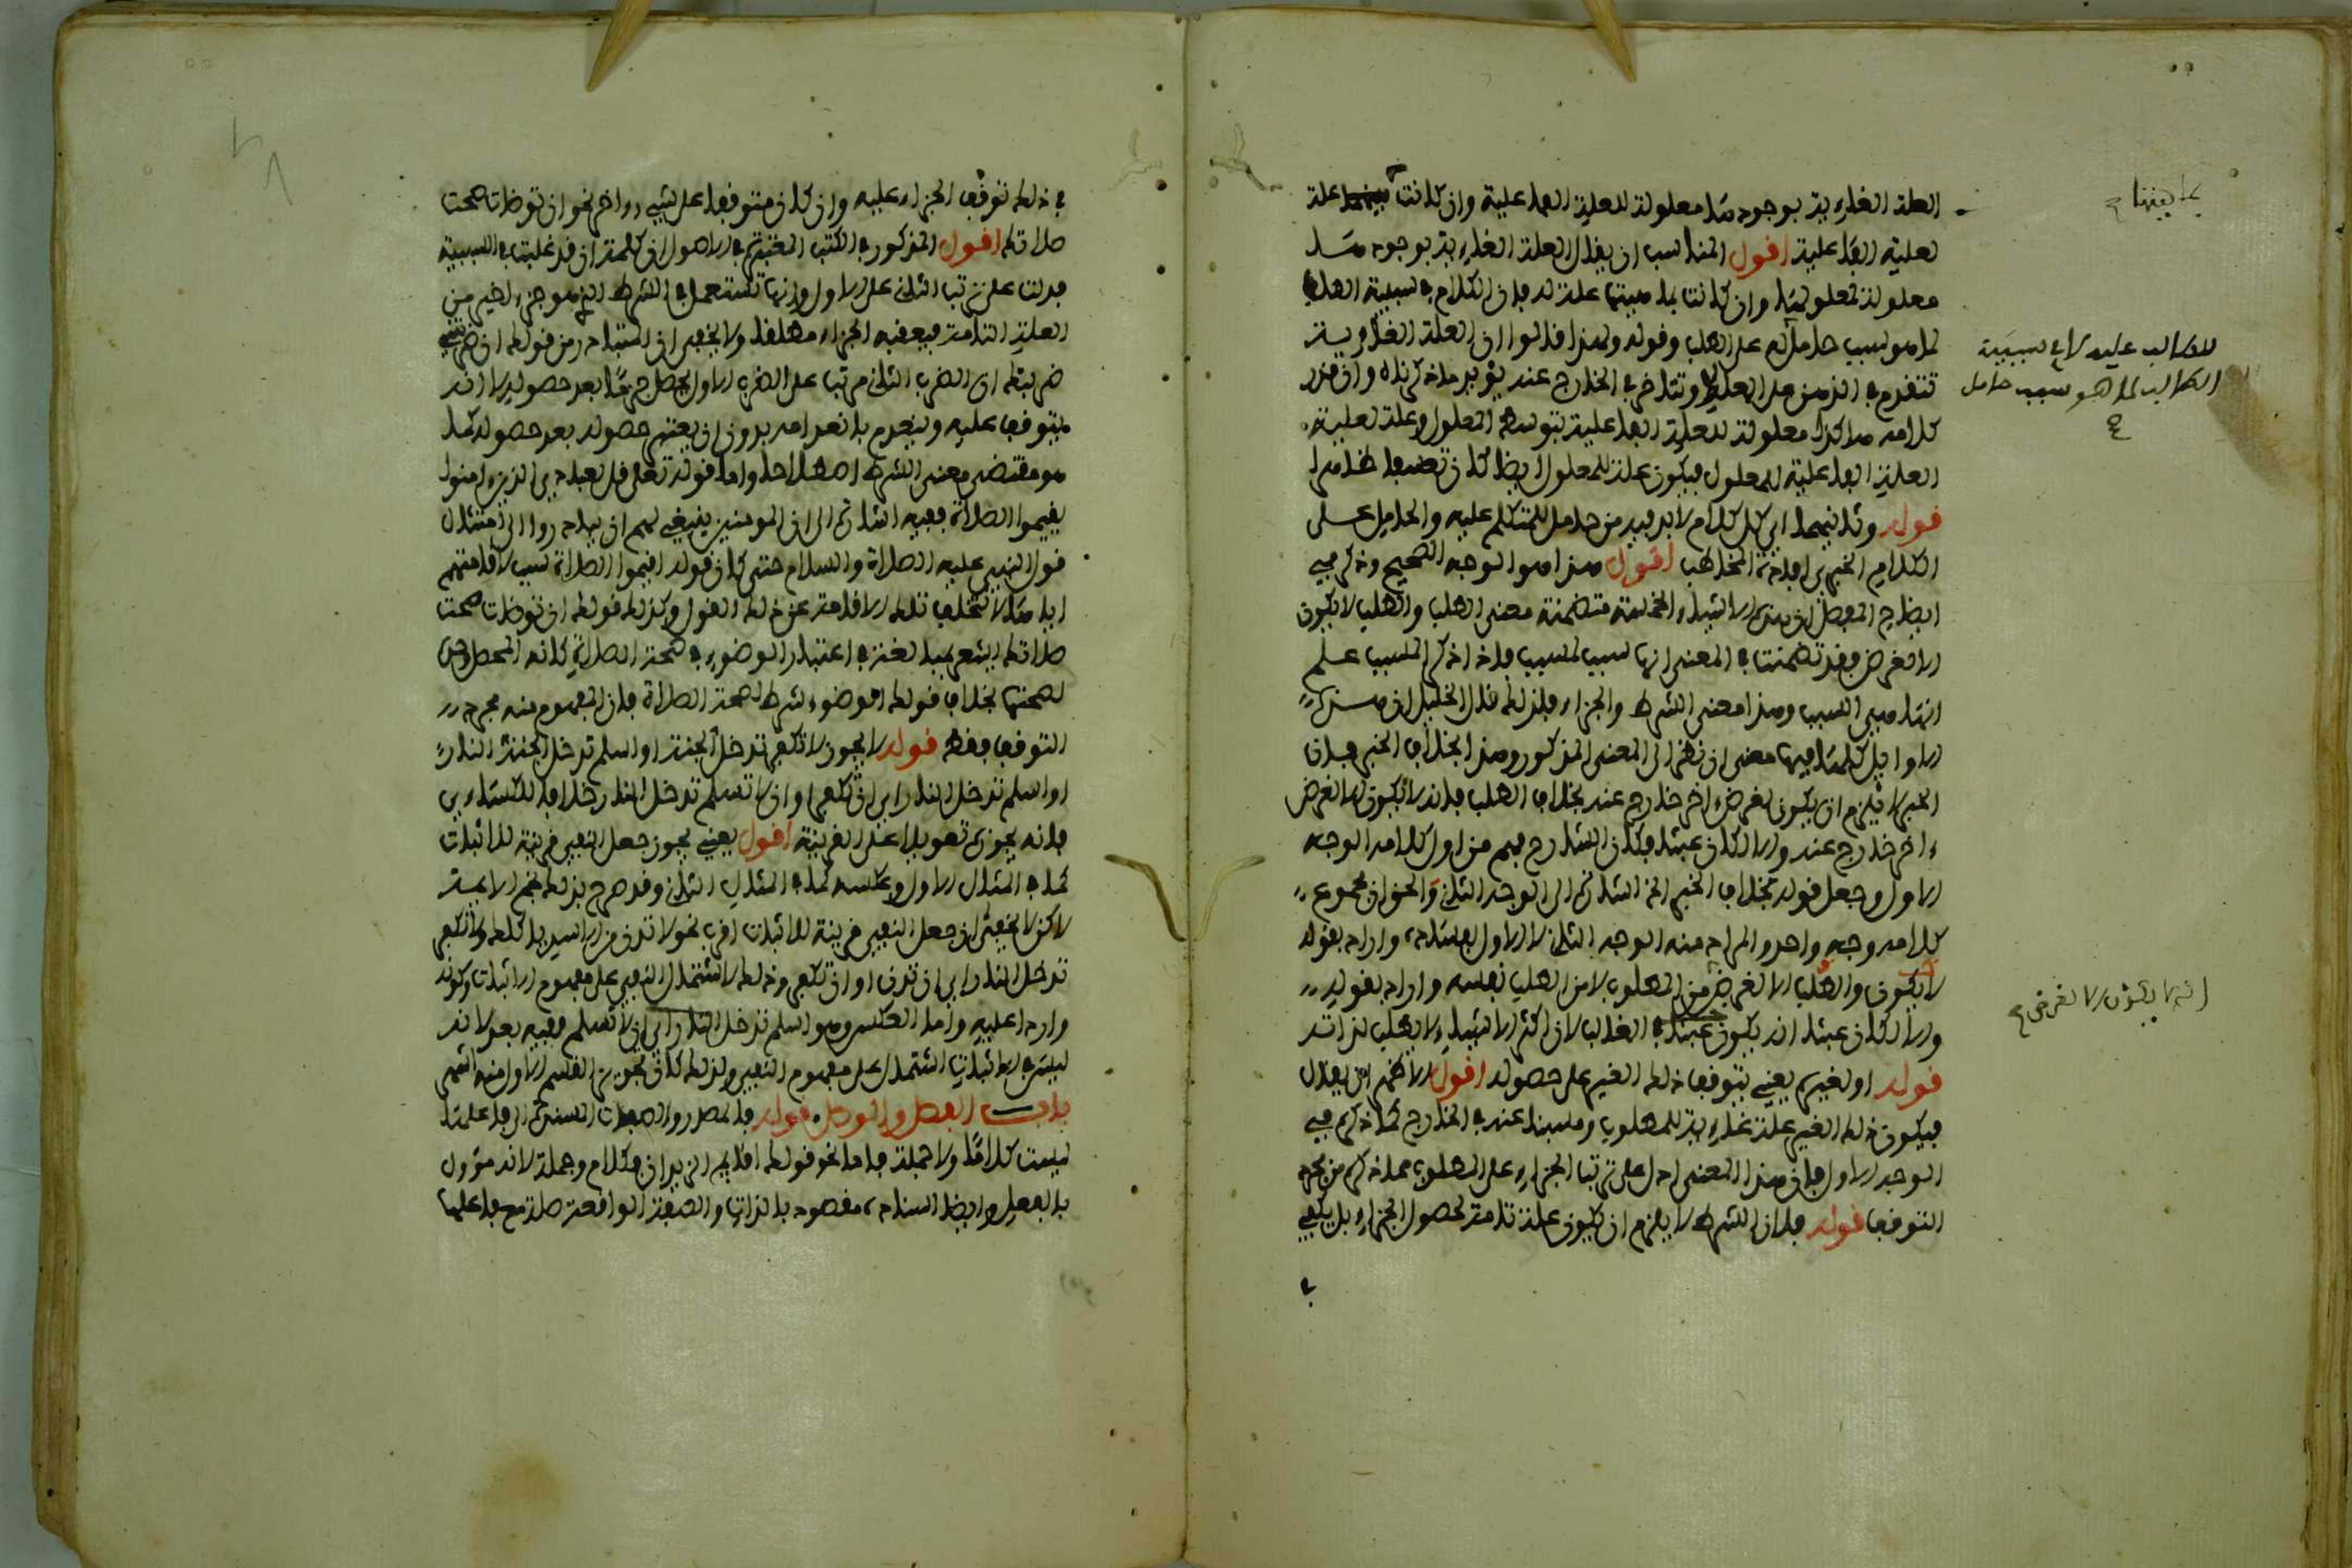 العلة الغاية بوجودها معلولة للعلة الفاعلية وان كانت علة
لعلية الفاعلية اقول المناسب ان يقال العلة الغائية بوجودها
معلولة لمعلولها وان كانت بماهيتها علة له فان الكلام في سببية الطلب
لما هو سبب حامل له على الطلب وقوله ولهذا قالوا ان العلة الغائية
تتقدم في الذهن على المعلول وتتاخر في الخارج عنه يؤيد ما ذكرناه وان قرر
كلامه هكذا معلولة للعلة الفاعلية بتوسط المعلول وعلة لعلية
العلة الفاعلية للمعلول فيكون علة للمعلول ايضا كان تعسفا ظاهرا
قوله وثانيهما ان كل كلام لا بد فيه من حامل للمتكلم عليه والحامل على
الكلام الخبري افادة المخاطب اقول هذا هو الوجه الصحيح وذكر في
ايضاح المفصل ان هذه الاشياء الخمسة متضمنة معنى الطلب والطلب لا يكون
الا لغرض فقد تضمنت في المعنى انها سبب لمسبب فاذا ذكر المسبب علم
انها هي السبب وهذا معنى الشرط والجزاء فلذلك قال الخليل ان هذه
الاوائل كلها فيها معنى ان نظرا الى المعنى المذكور وهذا بخلاف الخبر فان
الخبر لا يلزم ان يكون لغرض اخر خارج عنه بخلاف الطلب فانه لا يكون الا لغرض
ءاخر خارج عنه والا لكان عبثا فكان الشارح فهم من اول كلامه الوجه
الاول وجعل قوله بخلاف الخبر الخ اشارة الى الوجه الثاني والحق ان مجموع
كلامه وجه واحد والمراد منه الوجه الثاني لا الاول لفساده، واراد بقوله
لا يكون والطلب الا لغرض من المطلوب لا من الطلب نفسه واراد بقوله
والا لكان عبثا انه يكون عبثا في الغالب لان اكثر الاشياء لا يطلب لذاته
قوله او لغيره يعني يتوقف ذلك الغير على حصوله اقول الاظهر ان يقال
فيكون ذلك الغير علة غائية للمطلوب ومسببا عنه في الخارج كما ذكره في
الوجه الاول فان هذا المعنى ادل على ترتب الجزاء على الطلب مما ذكره من مجرد
التوقف قوله فلان الشرط لا يلزم ان يكون علة تامة لحصول الجزاء بل يكفي
بماهيتها صح
للطالب عليه لا في سببية
الطالب لما هو سبب حامل
صح
انه لا يكون الا لغرض صح
في ذلك توقف الجزاء عليه وان كان متوقفا على شيء ءاخر نحو ان توضات صحت
صلاتك اقول المذكور في الكتب المعتبرة في الاصول ان كلمة ان قد غلبت في السببية
فدلت على ترتب الثاني على الاول وانها تستعمل في الشرط الذي هو جزء اخير من
العلة التامة فيعقبه الجزاء مطلقا ولا يخفى ان المتبادر من قولك ان ضربتني
ضربتك ان الضرب الثاني مرتب على الضرب الاول يحصل جزما بعد حصوله لا انه
يتوقف عليه وينعدم بانعدامه بدون ان يعتبر حصوله بعد حصوله كما
هو مقتضى معنى الشرط اصطلاحا واما قوله تعلى قل لعبادي الذين ءامنوا
يقيموا الصلاة ففيه اشارة الى ان المومنين ينبغي لهم ان يبادروا الى امتثال
قول النبي عليه الصلاة والسلام حتى كان قوله اقيموا الصلاة سبب لاقامتهم
اياها لا تتخلف تلك الاقامة عن ذلك القول وكذلك قولك ان توضات صحت
صلاتك يشعر بمبالغة في اعتبار الوضوء في صحة الصلاة كانه المحصل
لصحتها بخلاف قولك الوضوء شرط لصحة الصلاة فان المفهوم منه مجرد
التوقف فقط قوله لا يجوز لا تكفر تدخل الجنة او اسلم تدخل الجنة النار
او اسلم تدخل النار اي ان تكفر او ان لا تسلم تدخل النار خلافا للكساءي
فانه يجوزه تعويلا على القرينة اقول يعني يجوز جعل النفي قرينة للاثبات
كما في المثال الاول وعكسه كما في المثال الثاني وقد صرح بذلك نجم الايمة
لاكن لا يخفى ان جعل النفي قرينة للاثبات اقرب نحو لا تدن من الاسد ياكلك ولا تكفر
تدخل النار اي ان تدن او ان تكفر وذلك لاشتمال النفي على مفهوم الاثبات وكونه
واردا عليه واما العكس وهو اسلم تدخل النار اي ان لا تسلم ففيه بعد لانه
ليس في الاثبات اشتمال على مفهوم النفي ولذلك كان تجويز القسم الاول منه اشهر
باب الفصل والوصل، قوله فالمصدر والصفات المسندة الى فاعلها
ليست كلاما ولا جملة واما نحو قولك اقائم الزيدان فكلام وجملة لانه مؤول
بالفعل وايضا اسناده مقصود بالذات والصفة الواقعة صلة مع فاعلها